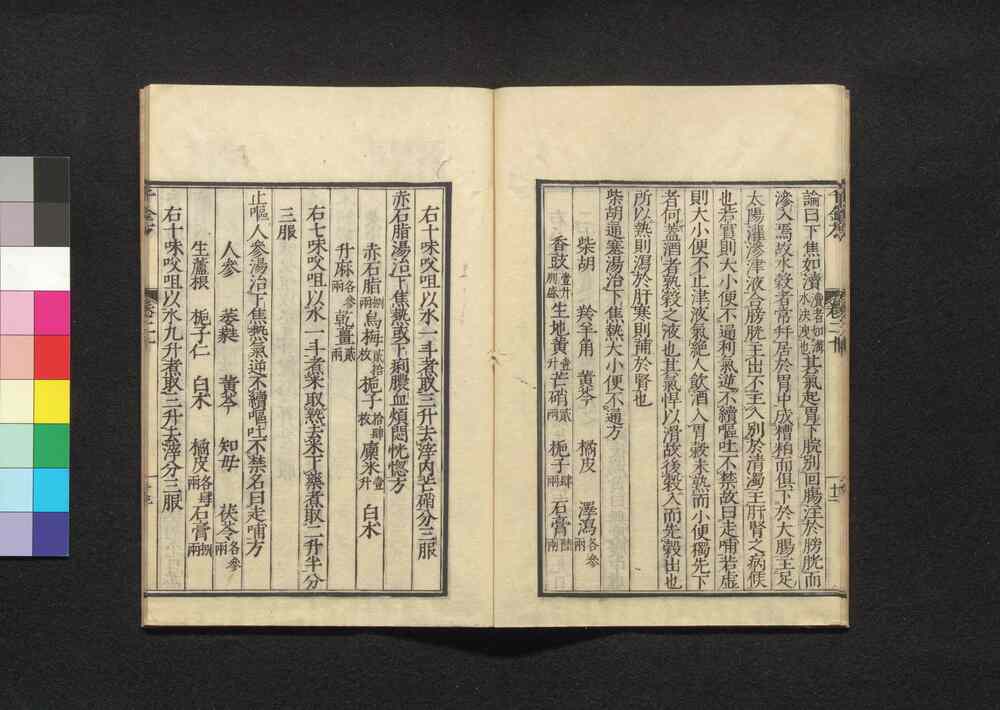 論曰下焦如瀆瀆者如溝水決洩也其氣起胃下脘別回腸注於膀胱而
滲入焉故水穀者常并居於胃中成糟粕而俱下於大腸主足
太陽灌滲津液合膀胱主出不主入別於清濁主肝腎之病候
也若實則大小便不通利氣逆不續嘔吐不禁故曰走哺若虛
則大小便不止津液氣絕人飲酒入胃穀未熟而小便獨先下
者何蓋酒者熟穀之液也其氣悍以滑故後穀入而先穀出也
所以熱則瀉於肝寒則補於腎也
柴胡通塞湯治下焦熱大小便不通方
柴胡 羚羊角 黃芩 橘皮 澤瀉各參兩
香豉壹升別盛生地黃壹升芒硝貳兩梔子肆兩石膏陸兩
右十味㕮咀以水一斗煮取三升去滓內芒硝分三服
赤石脂湯治下焦熱或下痢膿血煩悶恍惚方
赤石脂捌兩烏梅貳拾枚梔子拾肆枚廩米壹升白朮
升麻各參兩乾薑貳兩
右七味㕮咀以水一斗煮米取熟去米下藥煮取二升半分
三服
止嘔人參湯治下焦熱氣逆不續嘔吐不禁名曰走哺方
人參 萎蕤 黃芩 知母 茯苓各參兩
生蘆根 梔子仁 白朮 橘皮各肆兩石膏捌兩
右十味㕮咀以水九升煮取三升去滓分三服